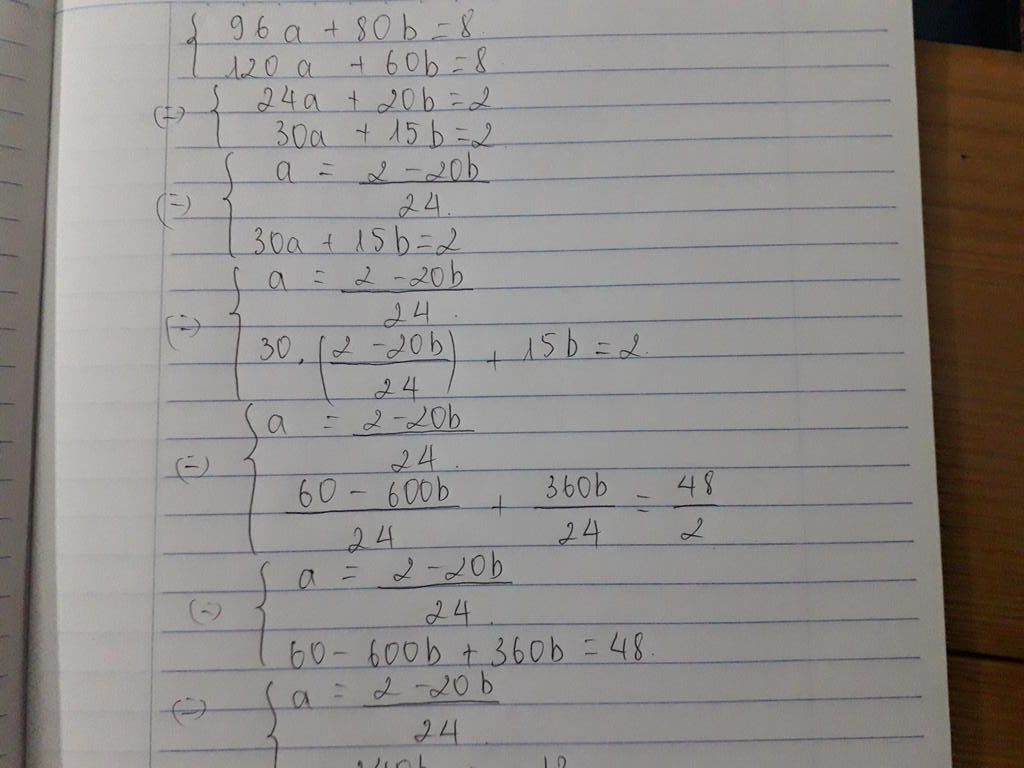 { 96a + 80b = 8
120a + 60b = 8
(=) { 24a + 20b = 2
30a + 15b = 2
(=) { a = (2 - 20b)/24
30a + 15b = 2
(=) { a = (2 - 20b)/24
30 . ((2 - 20b)/24) + 15b = 2
(=) { a = (2 - 20b)/24
(60 - 600b)/24 + 360b/24 = 48/2
(=) { a = (2 - 20b)/24
60 - 600b + 360b = 48
(=) { a = (2 - 20b)/24